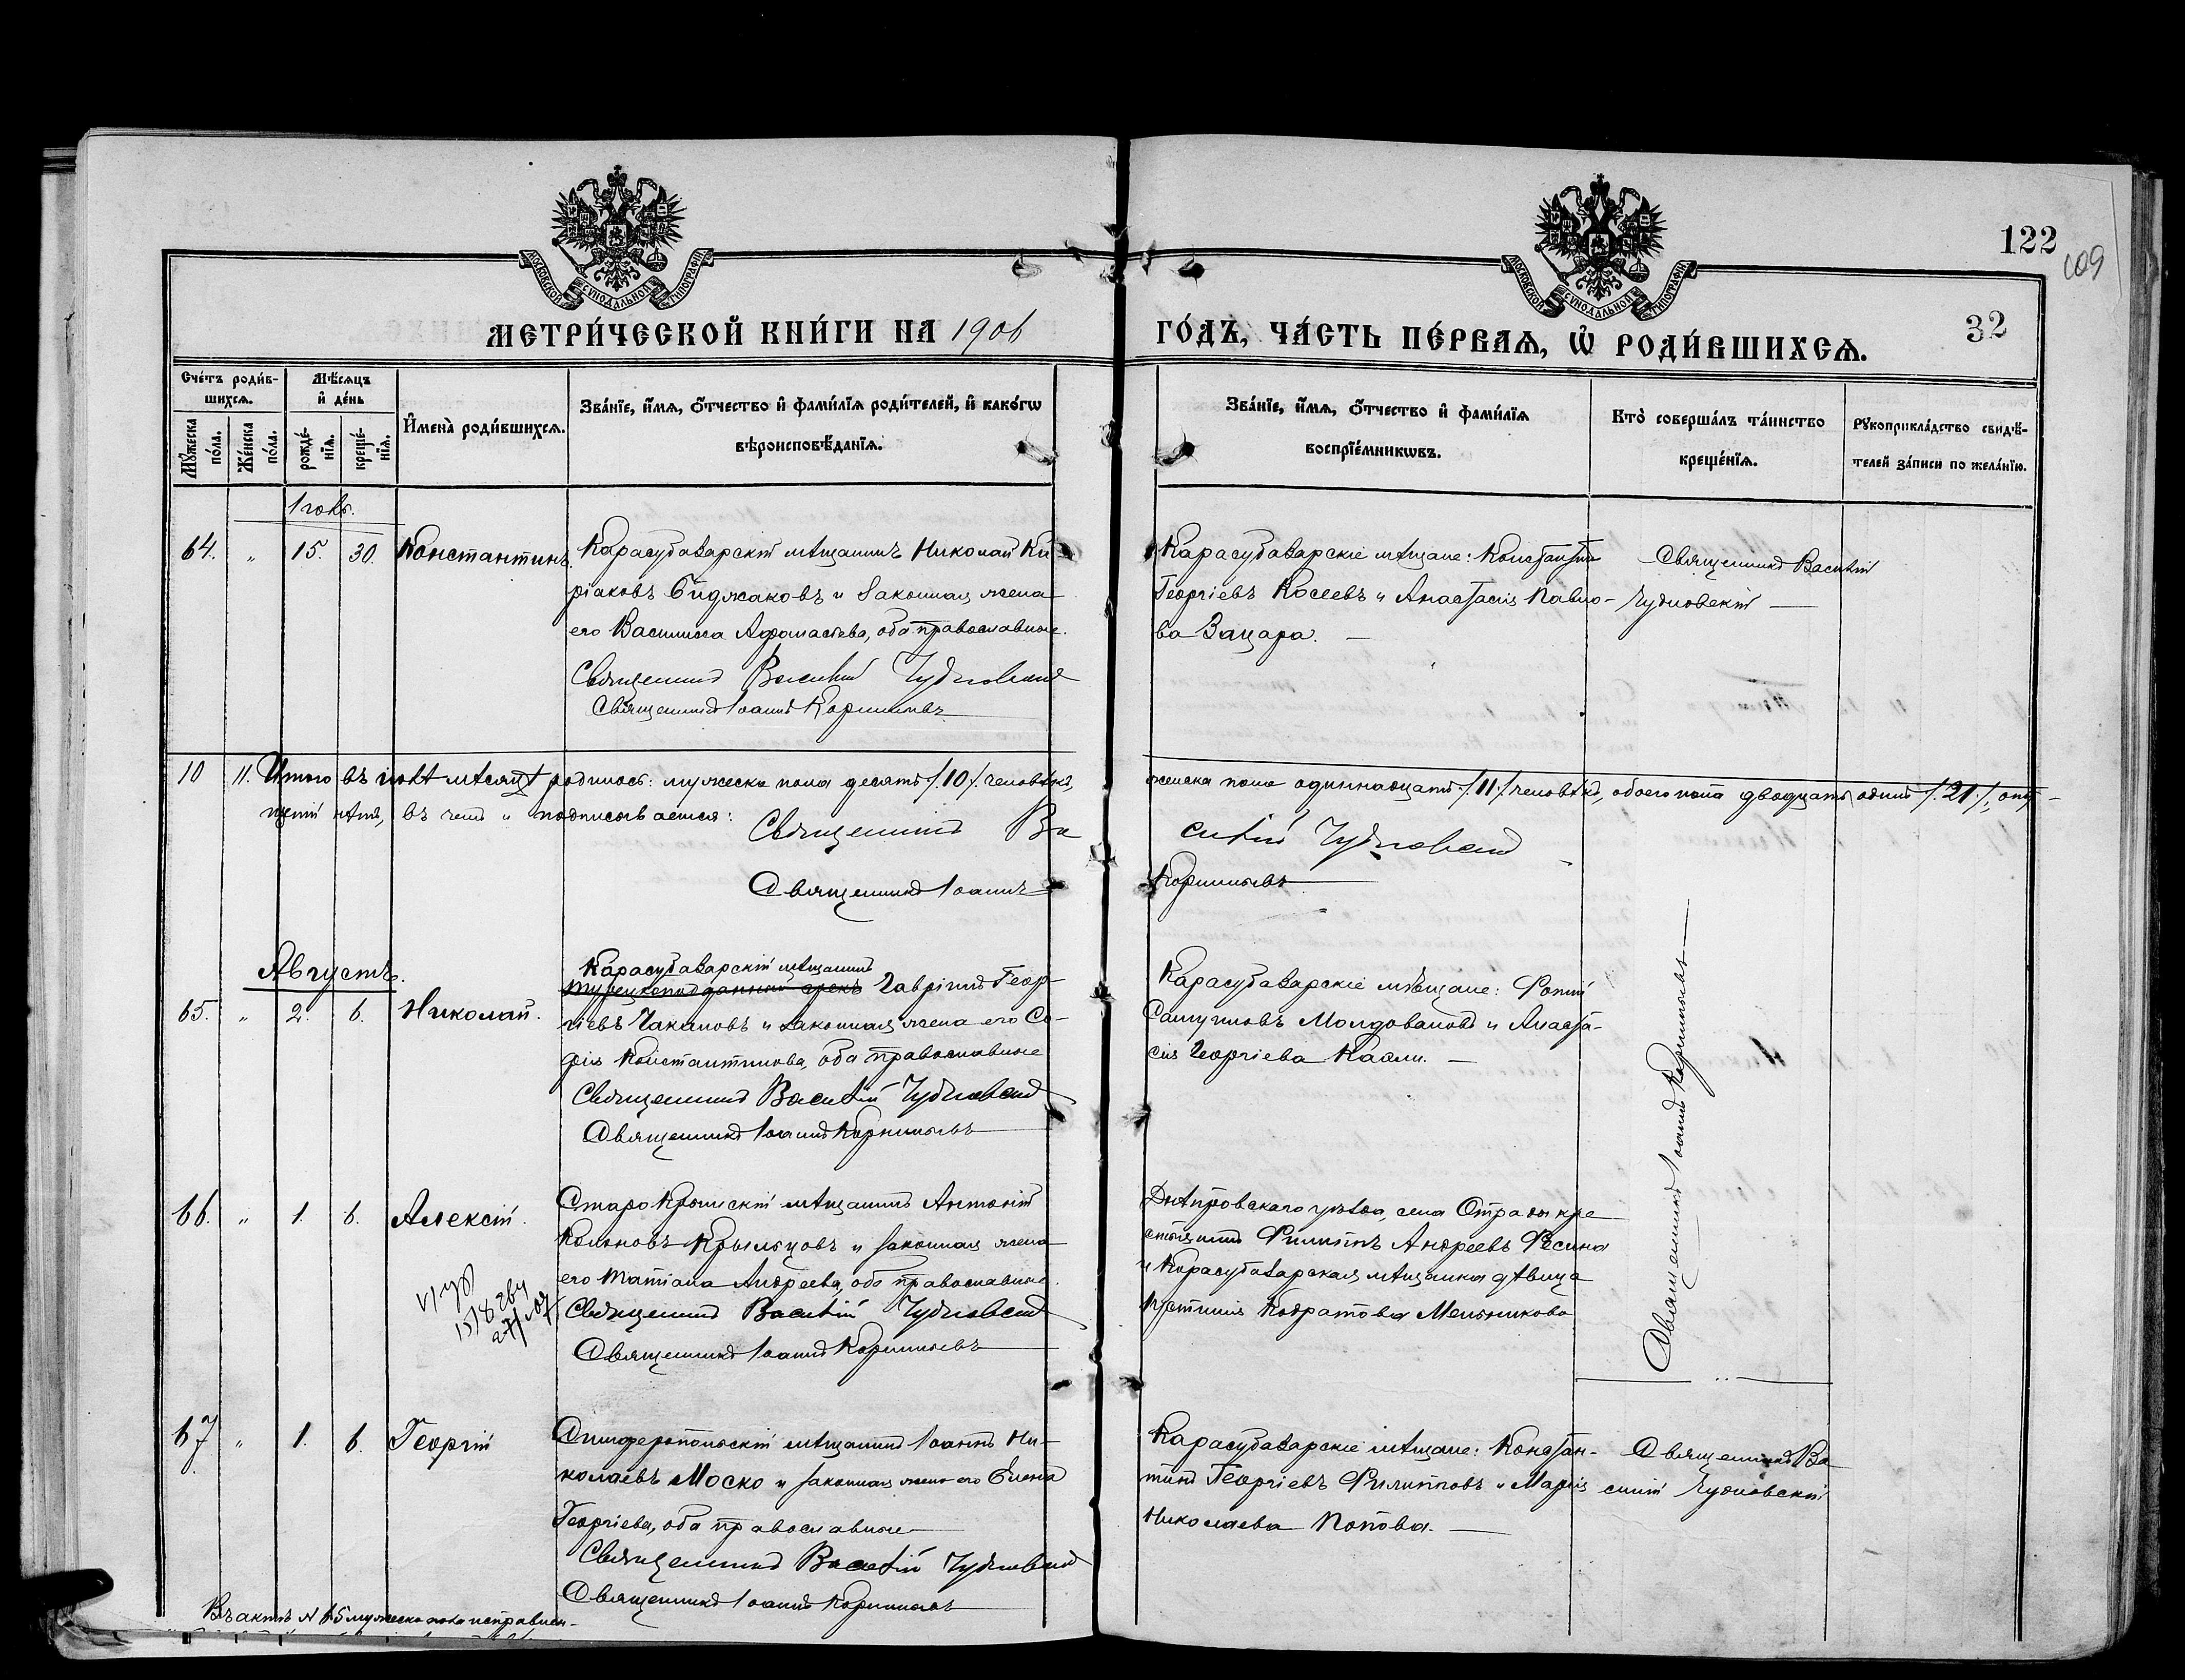 МОСКОВСКОЙ СѴНОДАЛЬНОЙ ТИПОГРАФІИ
МОСКОВСКОЙ СѴНОДАЛЬНОЙ ТИПОГРАФІИ
122
109
МЕТРИ́ЧЕСКОЙ КНИ́ГИ НА 1906
ГО́ДЪ, ЧА́СТЬ ПЕ́РВАѦ, Ѽ РОДИ́ВШИХСѦ.
32
Сче́тъ роди́в-
шихсѧ.
Мꙋжеска по́ла.
Же́нска по́ла.
Мѣ́сѧцъ
и҆ де́нь
рожде́-
нїѧ.
креще́-
нїѧ.
И҆мена̀ роди́вшихсѧ.
Зва́нїе, и҆́мѧ, ѻ҆́тчество и҆ фами́лїѧ роди́телей, и҆ како́гѡ
вѣроисповѣ́данїѧ.
Зва́нїе, и҆́мѧ, ѻ҆́тчество и҆ фами́лїѧ
воспрїе́мникѡвъ.
Кто̀ соверша́лъ та́инство
креще́нїѧ.
Рꙋкоприкла́дство свидѣ́-
телей за́писи по жела́нїю.
Іюль.
64. „ 15. 30. Константинъ.
Карасубазарскій мѣщанинъ Николай Ки-
ріаковъ Биджаковъ и законная жена
его Василиса Афонасьева, оба православные.
Священникъ Василій Чудновскій
Священникъ Іоаннъ Корнильевъ
Карасубазарскіе мѣщане: Константинъ
Георгіевъ Косеевъ и Анастасія Павло-
ва Зацара.
Священникъ Василій
Чудновскій
10 11. Итого въ іюлѣ мѣсяцѣ родилось: мужеска пола десять /10/ человѣкъ, женска пола одиннадцать /11/ человѣкъ, обоего пола двадцать одинъ /21/, опу-
щеній нѣтъ, въ чемъ и подписывается:
Священникъ Василій Чудновскій
Священникъ Іоаннъ Корнильевъ
Августъ.
65. „ 2. 6. Николай.
Карасубазарскій мѣщанинъ
Турецкоподданный грекъ Гавріилъ Геор-
гіевъ Чакаловъ и законная жена его Со-
фія Константинова, оба православные
Священникъ Василій Чудновскій
Священникъ Іоаннъ Корнильевъ
Карасубазарскіе мѣщане: Фотій
Самуиловъ Молдовановъ и Анаста-
сія Георгіева Касли.
Священникъ Іоаннъ Корнильевъ
66. „ 1. 6. Алексій.
Старокрымскій мѣщанинъ Антоній
Крыльцовъ и законная жена
его Татіана Андреева, оба православные.
Священникъ Василій Чудновскій
Священникъ Іоаннъ Корнильевъ
Днѣпровскаго уѣзда, села Отрады кре-
стьянинъ Филиппъ Андреевъ Фесина
и Карасубазарская мѣщанка дѣвица
Іустинія Кодратова Мельникова
67. „ 1. 6. Георгій
Симферопольскій мѣщанинъ Іоаннъ Ни-
колаевъ Моско и законная жена его Елена
Георгіева, оба православные
Священникъ Василій Чудновскій
Священникъ Іоаннъ Корнильевъ
Карасубазарскіе мѣщане: Констан-
тинъ Георгіевъ Филипповъ и Марія
Николаева Попова.
Священникъ Ва-
силій Чудновскій
Въ актѣ № 65 мужеска пола исправлен-